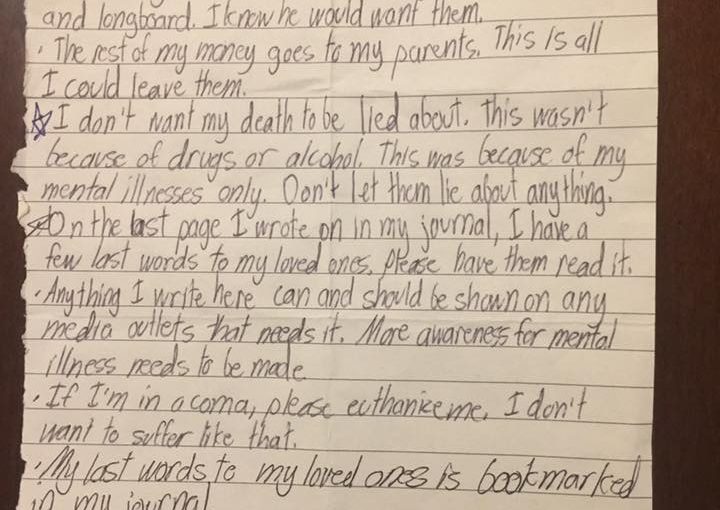 and longboard. I know he would want them.
· The rest of my money goes to my parents. This is all
I could leave them.
I don't want my death to be lied about. This wasn't
because of drugs or alcohol. This was because of my
mental illnesses only. Don't let them lie about anything.
On the last page I wrote on in my journal, I have a
few last words to my loved ones. please have them read it.
· Anything I write here can and should be shown on any
media outlets that needs it. More awareness for mental
illness needs to be made
· If I'm in a coma, please euthanize me. I don't
want to suffer like that.
· My last words to my loved ones is bookmarked
in my journal